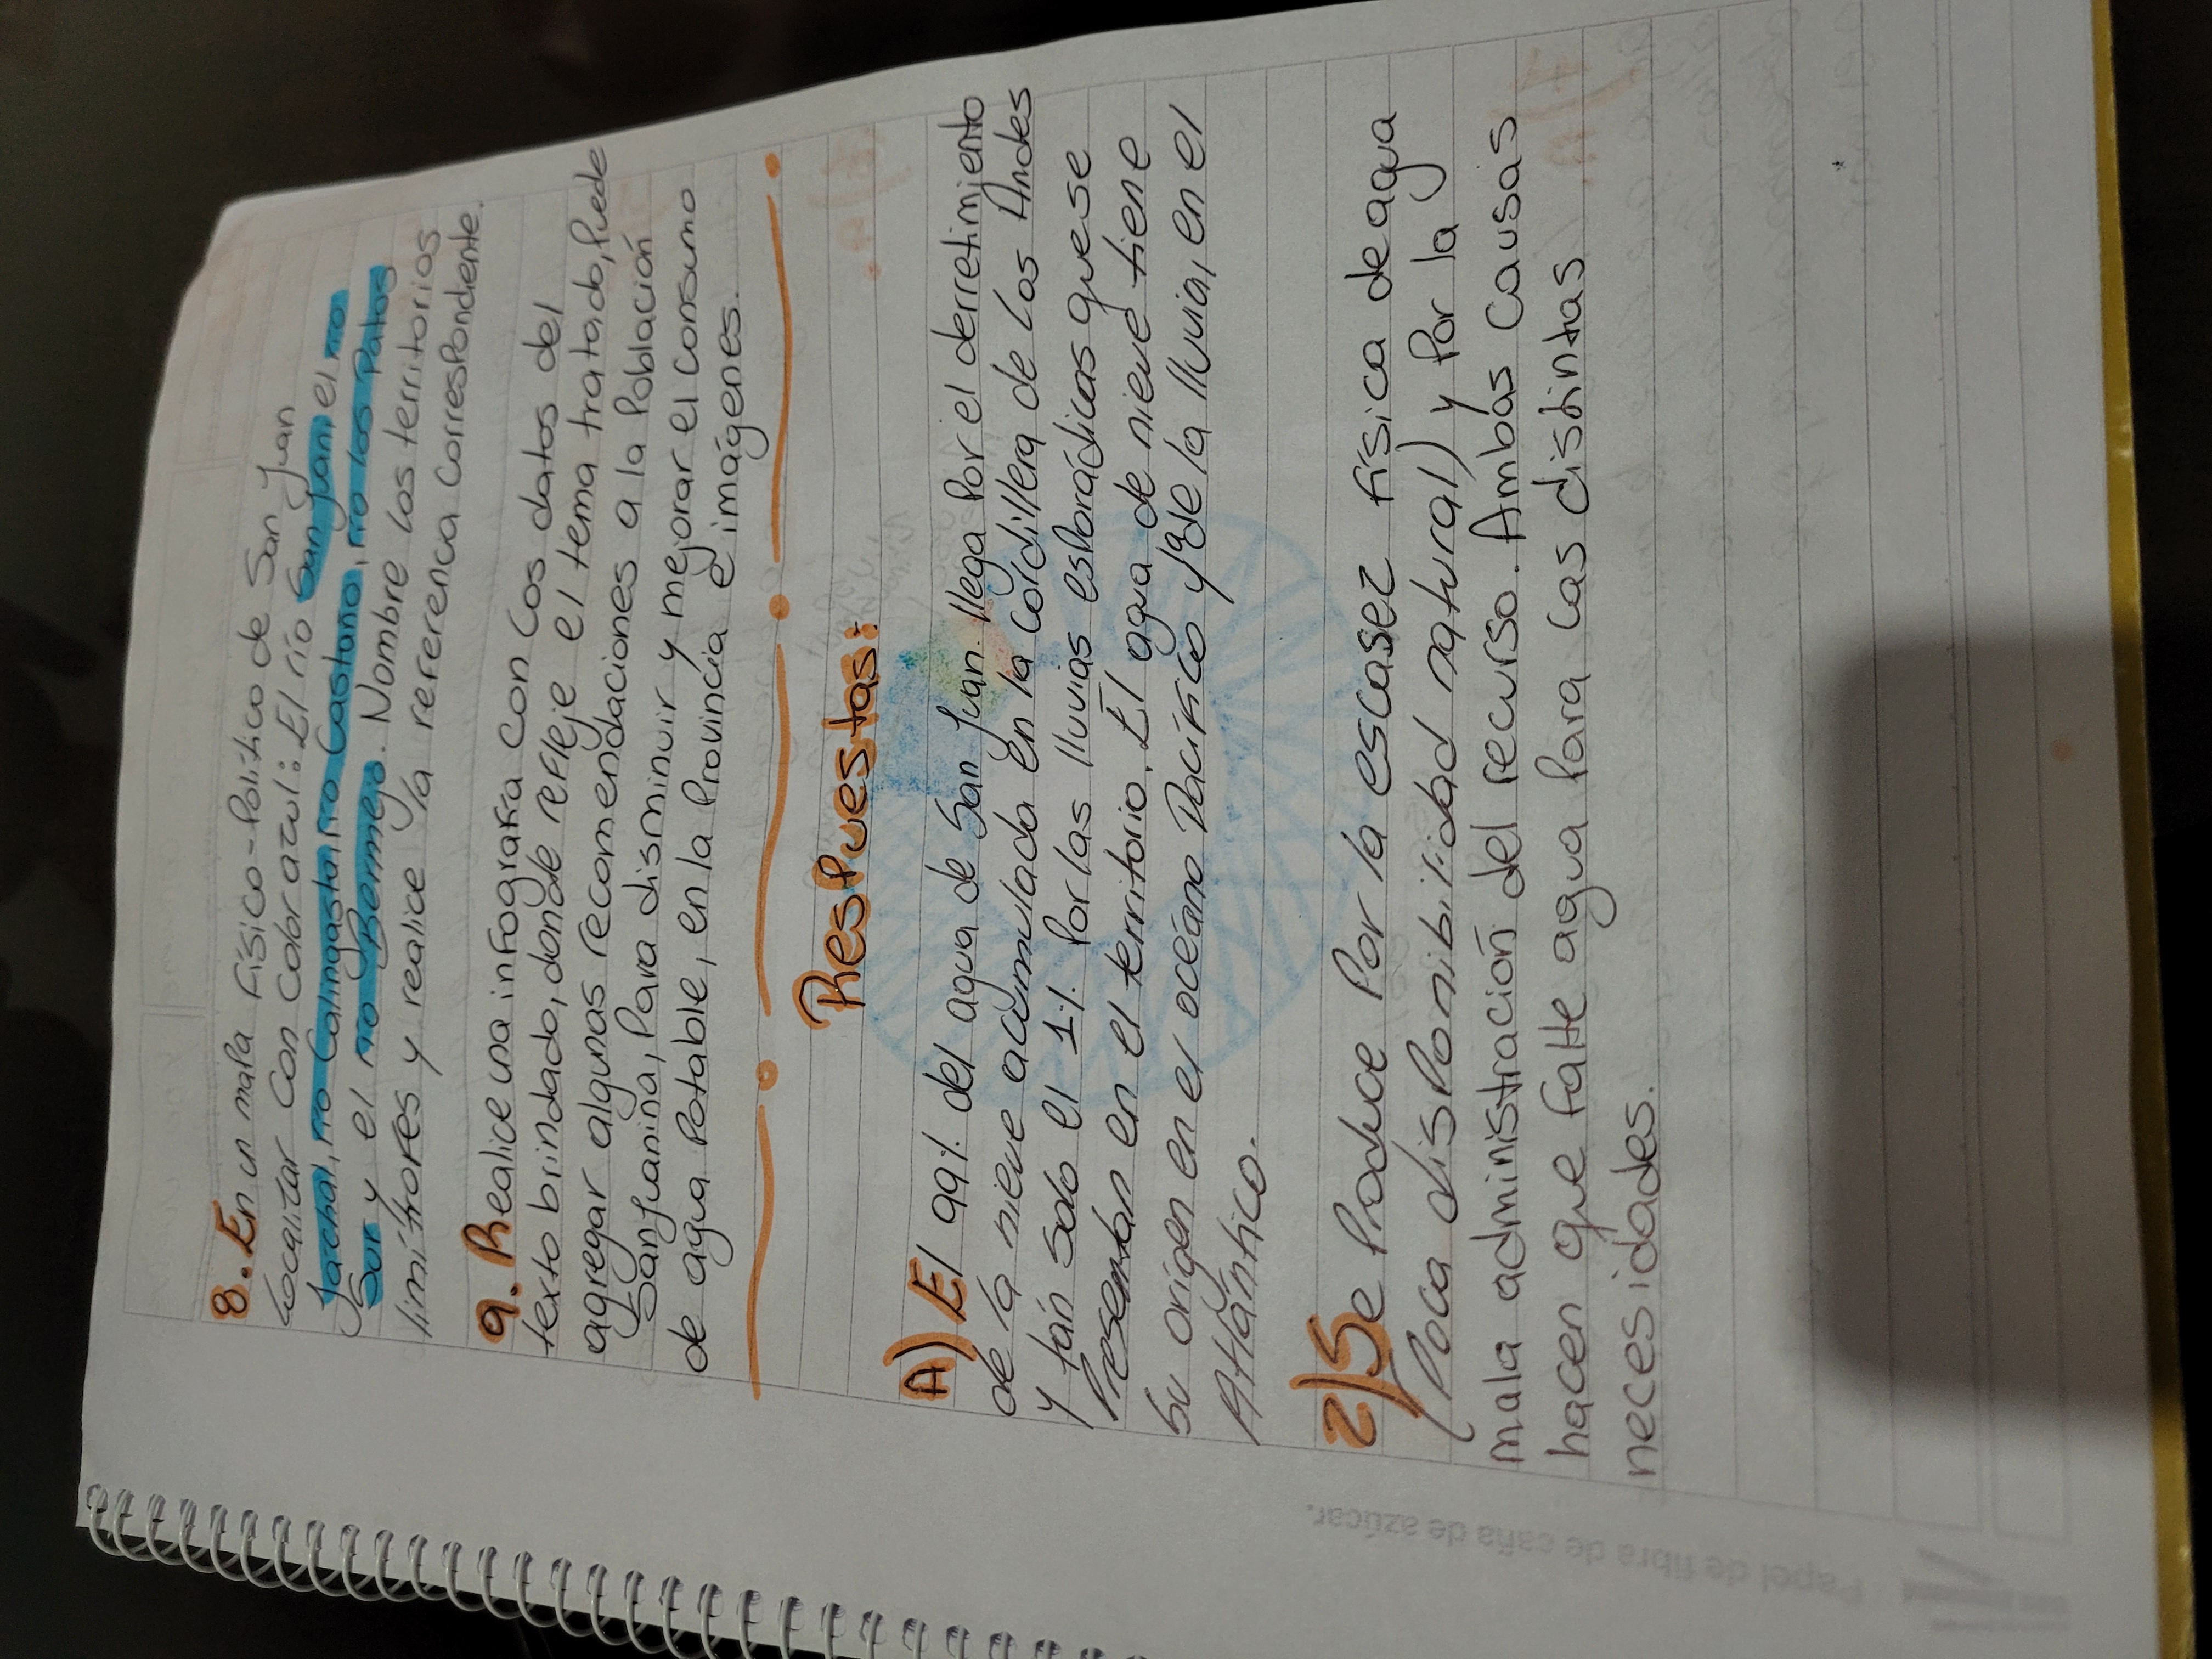 8. En un mapa físico-político de San Juan
localizar con color azul: El río San Juan, el río
Jachal, río Calingasta, río Castaño, río los Patos
Sur y el río Bermejo. Nombre los territorios
limítrofes y realice la referencia correspondiente.
9. Realice una infografía con los datos del
texto brindado, donde refleje el tema tratado, puede
agregar algunas recomendaciones a la población
Sanjuanina, para disminuir y mejorar el consumo
de agua potable, en la provincia e imágenes.
Respuestas:
A) El 99% del agua de San Juan llega por el derretimiento
de la nieve acumulada en la cordillera de Los Andes
y tán solo el 1% por las lluvias esporádicas que se
presentan en el territorio. El agua de nieve tiene
su orígen en el océano Pacífico y la de la lluvia, en el
Atlántico.
2) Se produce por la escasez física de agua
(Poca disponibilidad natural) y por la
mala administración del recurso. Ambas causas
hacen que falte agua para las distintas
necesidades.
Papel de fibra de caña de azúcar.